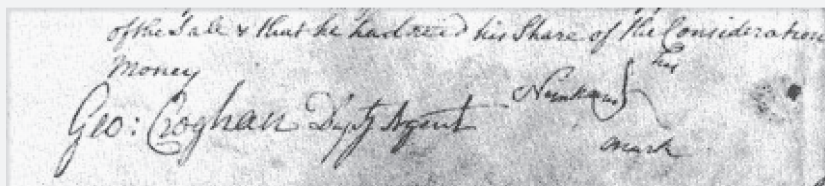 of the Sale & that he had recd his Share of the Consideration
Money
his
Geo: Croghan Dupty Agent
mark